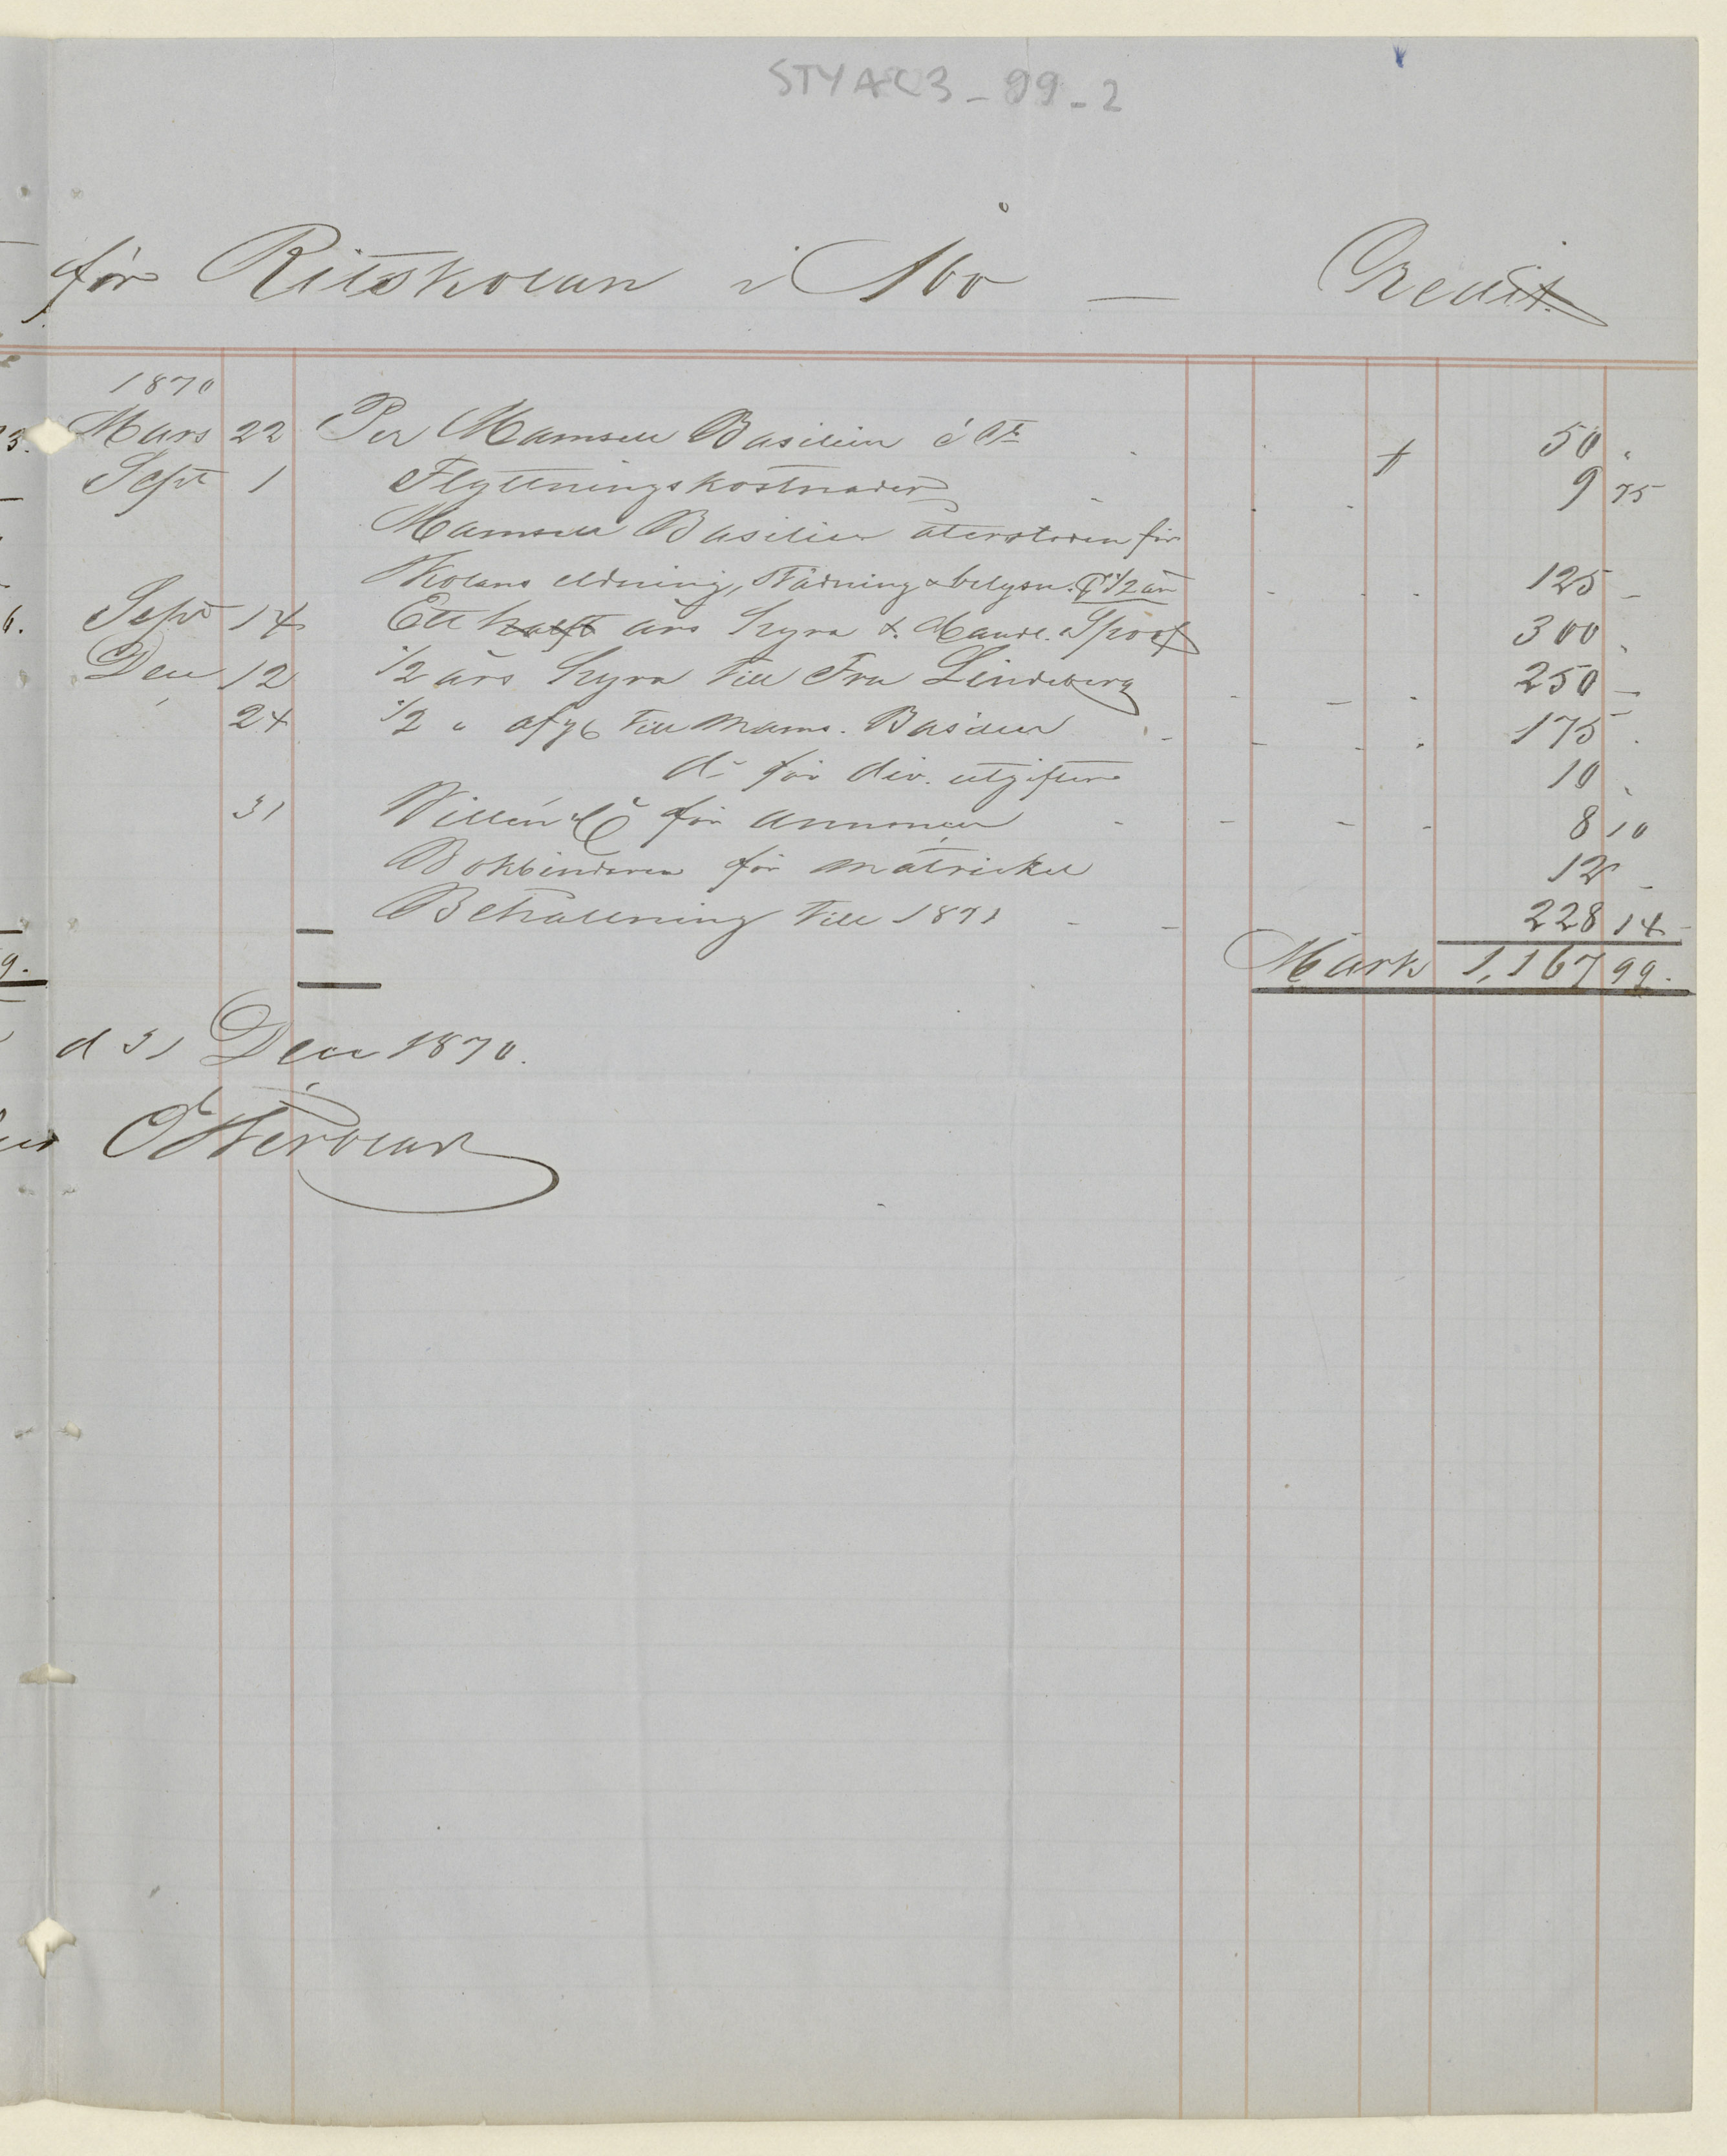 STYAC3_99_2
för Ritskolan i Åbo — Credit.
1870
Mars 22 Per Mamsell Basilier á Ct 50 "
Sept 1 Flyttningskostnader 9 75
Mamsell Basilier återstoden för
Skolans eldning, städning & belysn. p 1/2 år 125 –
Sept 14 Ett halft års hyra t. Handl. Spoof 300 "
Dec 12 1/2 års hyra till Fru Lindeberg 250 –
24 1/2 " afg till Mams. Basilier 175 "
do för div. utgifter 10 "
31 Willén & Co för annonser 8 10
Bokbinderen för matrikel 12 –
Behållning till 1871 228 14
Mark 1,167 99.
d 31 Dec 1870.